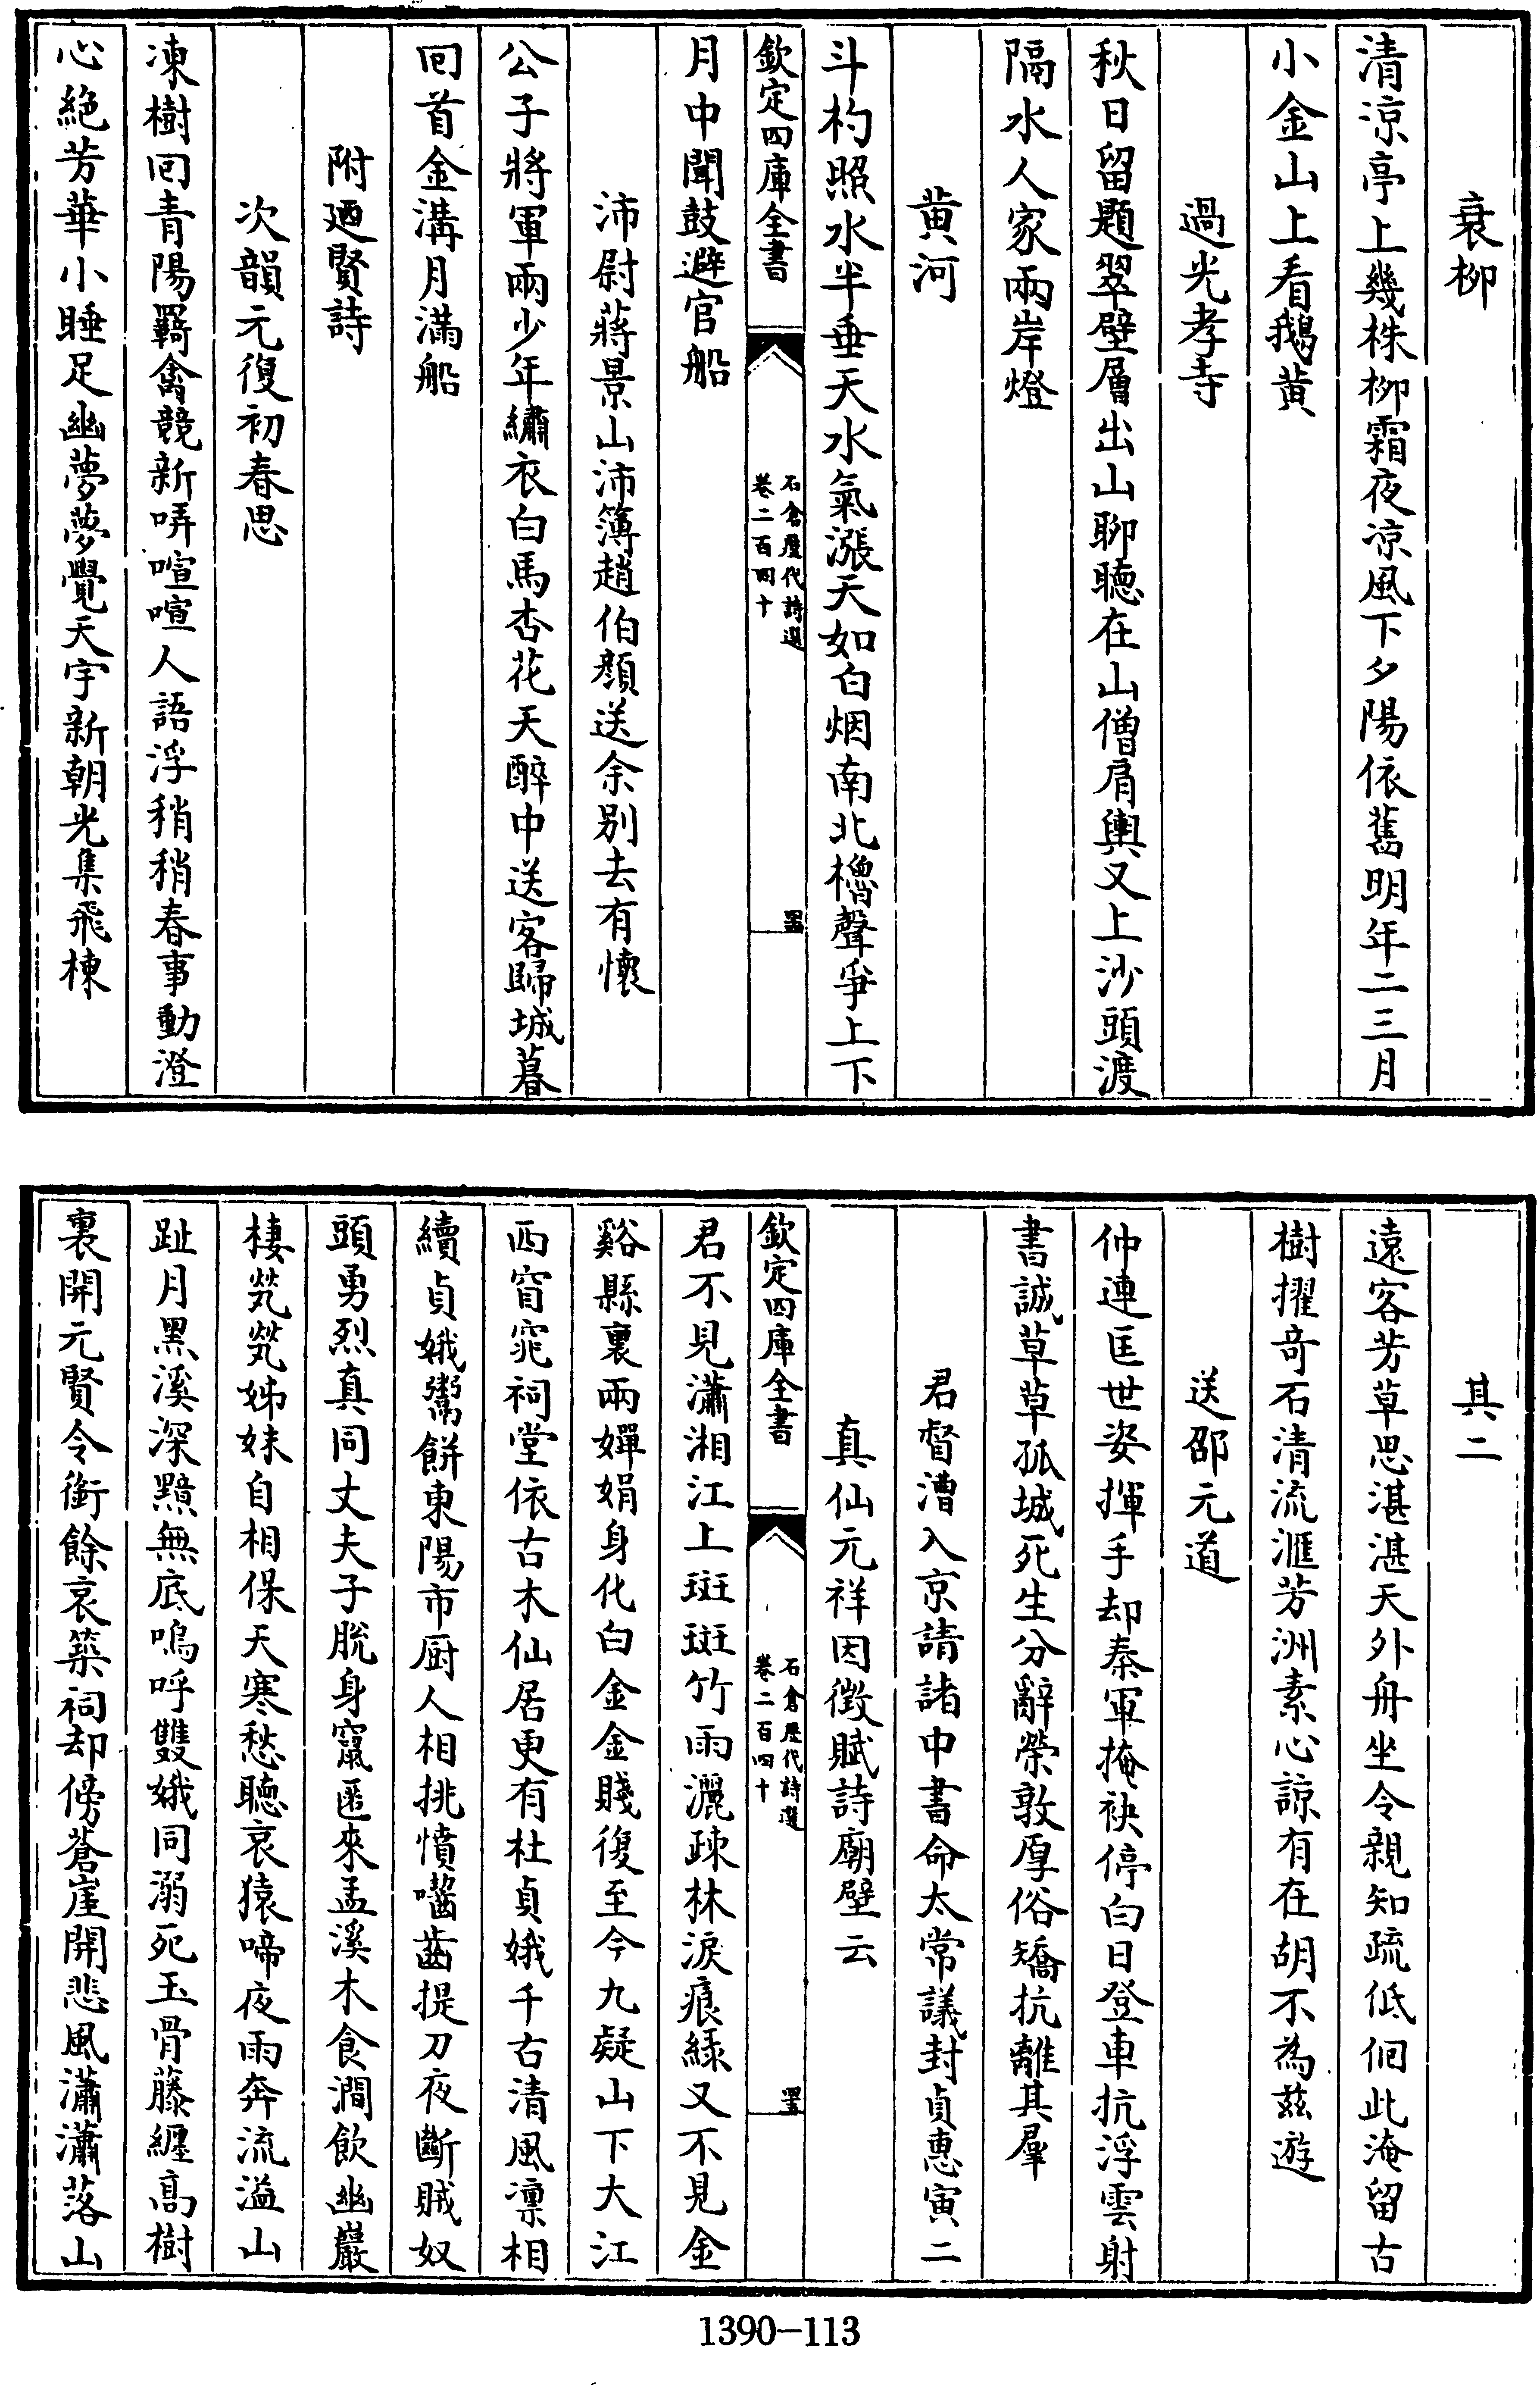 衰柳
清涼亭上幾株柳霜夜凉風下夕陽依舊明年二三月
小金山上看鵝黄
過光孝寺
秋日留題翠壁層出山聊聴在山僧肩輿又上沙頭渡
隔水人家兩岸燈
黄河
斗杓照水半垂天水氣漲天如白烟南北櫓聲爭上下
欽定四庫全書
石倉歷代詩選
卷二百四十
罢
月中聞鼓避官船
沛尉蔣景山沛簿趙伯顔送余别去有懷
公子將軍兩少年繡衣白馬杏花天醉中送客歸城暮
囘首金溝月滿船
附廼賢詩
次韻元復初春思
凍樹囘青陽羇禽競新哢喧喧人語浮稍稍春事動澄
心絶芳華小睡足幽夢夢覺天宇新朝光集飛棟
其二
遠客芳草思湛湛天外舟坐令親知疏低佪此淹留古
樹擢竒石清流滙芳洲素心諒有在胡不為兹遊
送邵元道
仲連匡世姿揮手却秦軍掩袂停白日登車抗浮雲射
書誠草草孤城死生分辭榮敦厚俗矯抗離其羣
君督漕入京請諸中書命太常議封貞惠寅二
真仙元祥因徵賦詩廟壁云
欽定四庫全書
石倉歷代詩選
卷二百四十
君不見瀟湘江上斑斑竹雨灑疎林淚痕緑又不見金
谿縣裏兩嬋娟身化白金金賤復至今九疑山下大江
西窅窕祠堂依古木仙居更有杜貞娥千右清風凛相
續貞娥鬻餅東陽市厨人相挑憤囓齒提刀夜斷賊奴
頭勇烈真同丈夫子脱身竄匿來孟溪木食澗飲幽巖
棲煢煢姊妹自相保天寒愁聴哀猿啼夜雨奔流溢山
趾月黑溪深黯無底嗚呼雙娥同溺死玉骨藤纒高樹
裏開元賢令銜餘哀築祠却傍蒼崖開悲風瀟瀟落山
1390-113